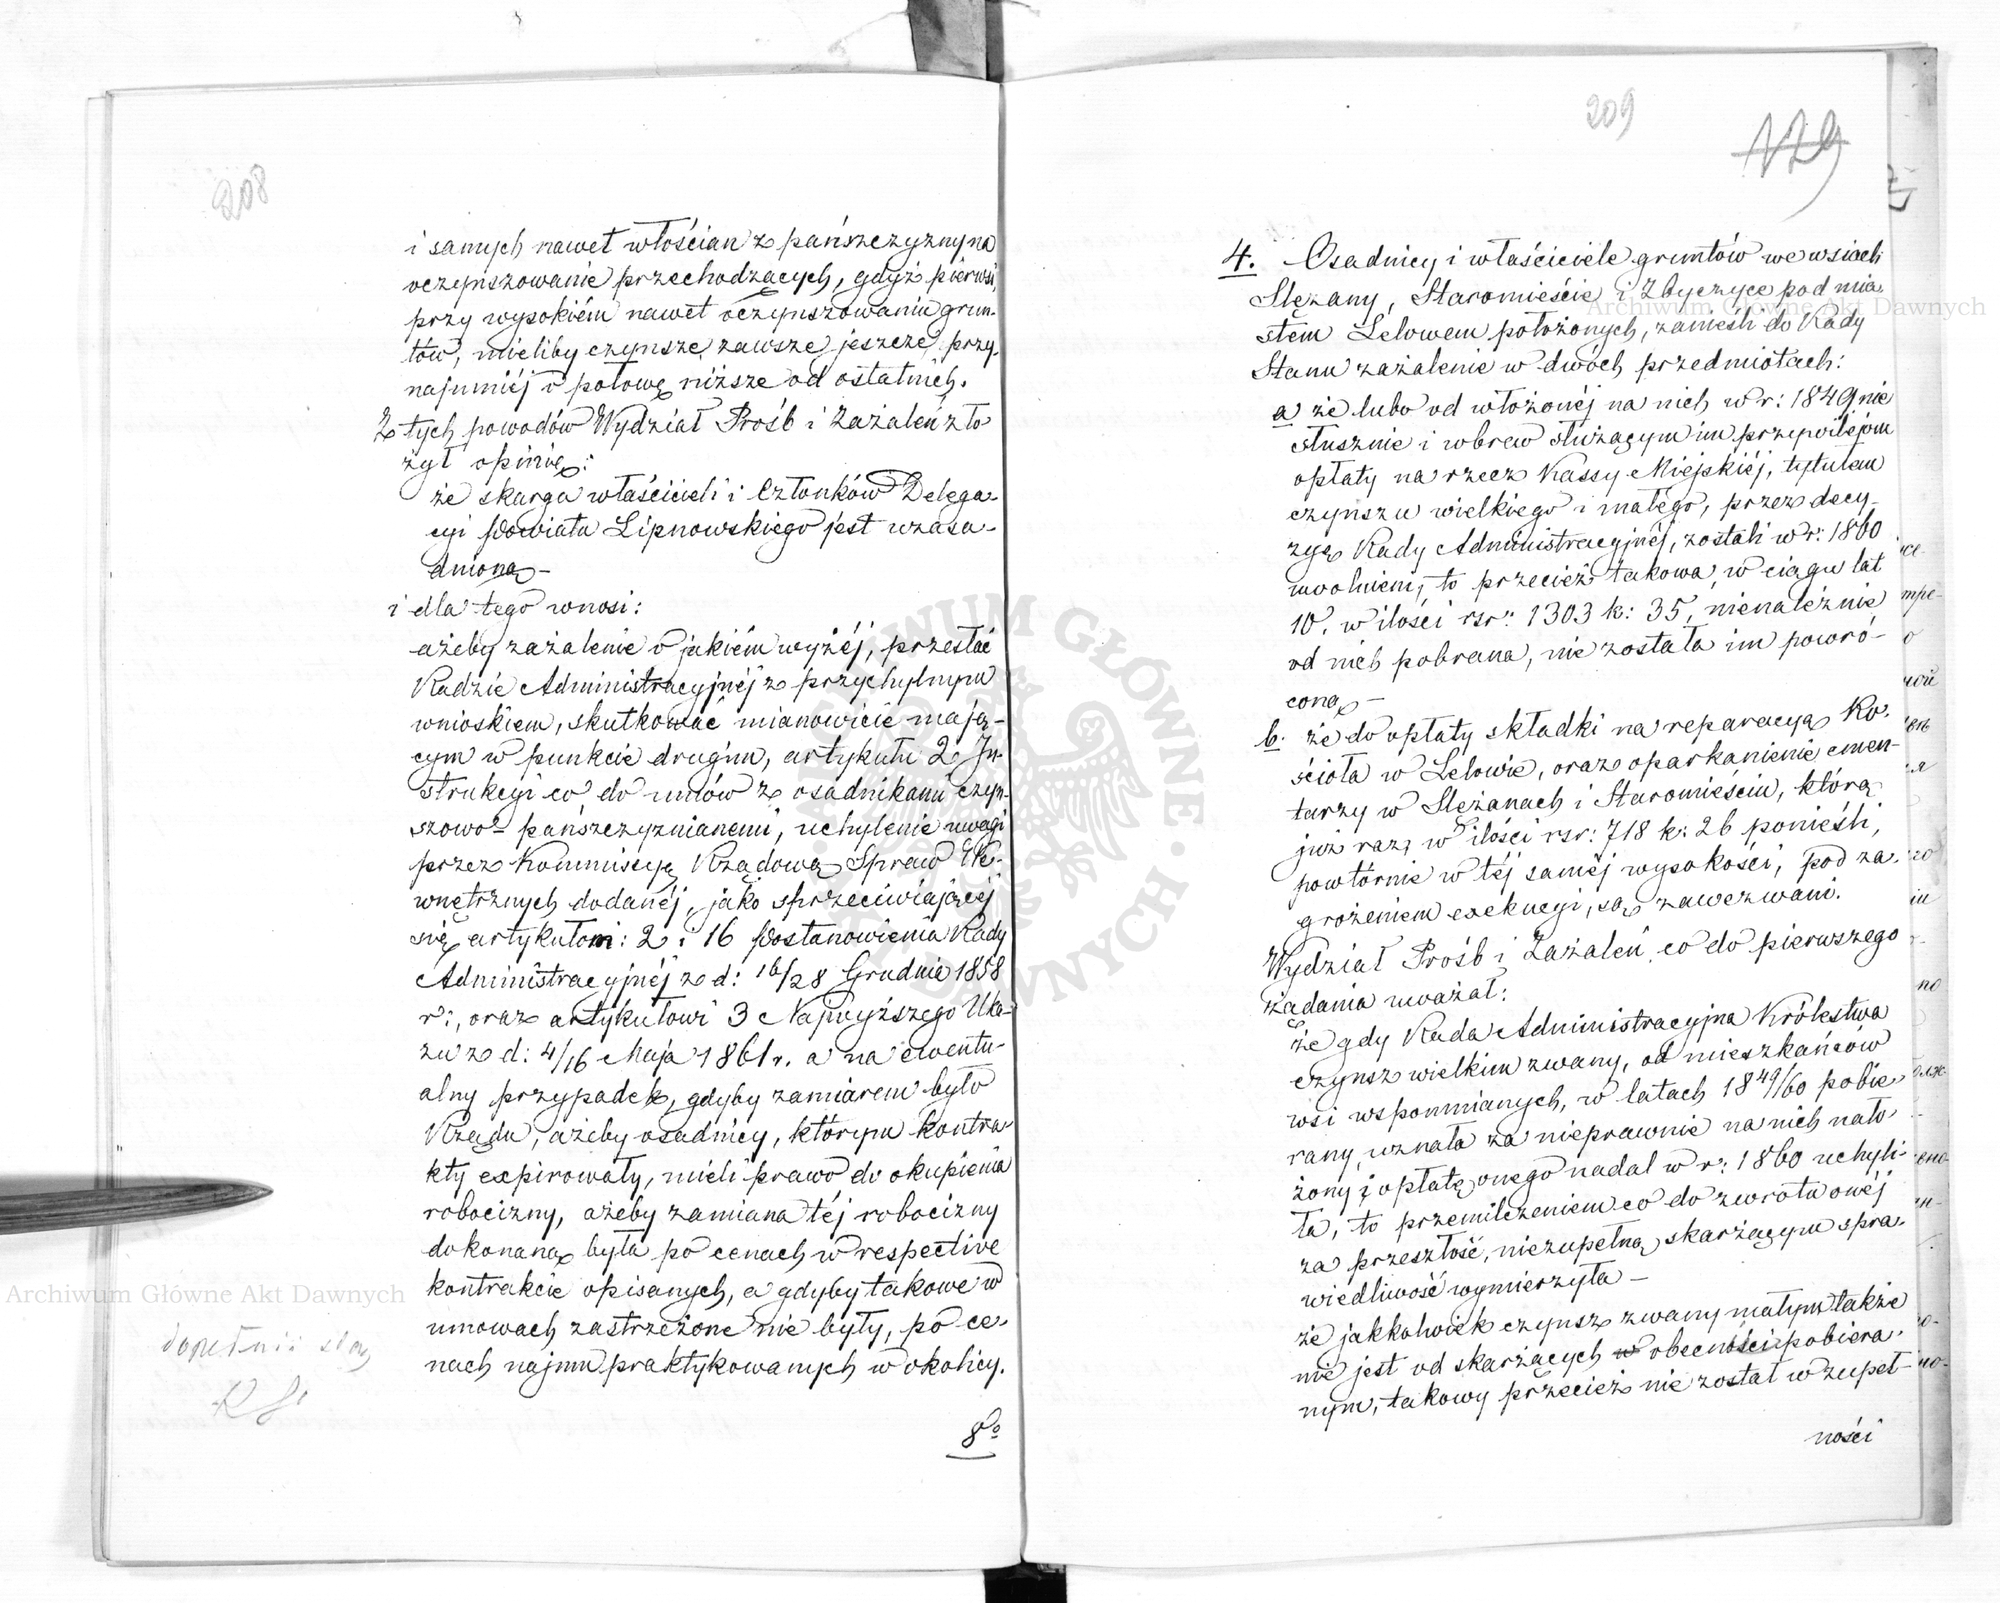 208
i samych nawet włościan z pańszczyzny na
oczynszowanie przechodzących, gdyż pierwsi,
przy wysokiém nawet oczynszowaniu grun-
tów, mieliby czynsze zawsze jeszcze przy-
najmniéj o połowę niższe od ostatnich.
Z tych powodów Wydział Próśb i Zażaleń zło
żył opinię:
że skarga właścicieli i Członków Delega-
cyi Powiatu Lipnowskiego jest uzasa-
dnioną –
i dla tego wnosi:
ażeby zażalenie o jakiém wyżéj, przesłać
Radzie Administracyjnéj z przychylnym
wnioskiem, skutkować mianowicie mają-
cym w punkcie drugim, artykułu 2 In-
strukcyi co do umów z osadnikami czyn-
szowo-pańszczyznianemi, uchylenie uwagi
przez Kommissyę Rządową Spraw We-
wnętrznych dodanéj, jako sprzeciwiającéj
się artykułom: 2 i 16 Postanowienia Rady
Administracyjnéj z d: 16/28 Grudnia 1858
r:, oraz artykułowi 3 Najwyższego Uka-
zu z d: 4/16 Maja 1861 r. a na ewentu-
alny przypadek, gdyby zamiarem było
Rządu, ażeby osadnicy, którym kontra-
kty expirowały, mieli prawo do okupienia
robocizny, ażeby zamiana téj robocizny
dokonaną była po cenach w respective
kontrakcie opisanych, a gdyby takowe w
umowach zastrzeżone nie były, po ce-
nach najmu praktykowanych w okolicy.
209
129
4. Osadnicy i właściciele gruntów we wsiach
Slężany, Staromieście i Zbyczyce pod mia-
stem Lelowem położonych, zanieśli do Rady
Stanu zażalenie w dwóch przedmiotach:
a że lubo od włożonéj na nich w r: 1849 nie
słusznie i wbrew służącym im przywilejom
opłaty na rzecz Kassy Miejskiéj, tytułem
czynszu wielkiego i małego, przez decy-
zyę Rady Administracyjnéj, zostali w r: 1860
uwolnieni, to przecież takowa, w ciągu lat
10. w ilości rsr: 1303 k: 35, nienależnie
od nich pobrana, nie została im powró-
coną –
b. że do opłaty składki na reparacyą Ko-
ścioła w Lelowie, oraz oparkanienie cmen-
tarzy w Slężanach i Staromieściu, którą
już raz, w ilości rsr: 718 k: 26 ponieśli,
powtórnie w téj saméj wysokości, pod za-
grożeniem exekucyi, są zawezwani.
Wydział Próśb i Zażaleń, co do pierwszego
żądania uważał:
że gdy Rada Administracyjna Królestwa
czynsz wielkim zwany, od mieszkańców
wsi wspomnianych, w latach 1849/60 pobie-
rany, uznała za nieprawnie na nich nało-
żony i opłatę onego nadal w r: 1860 uchyli-
ła, to przemilczeniem co do zwrotu onéj
za przeszłość, niezupełną skarżącym spra-
wiedliwość wymierzyła –
że jakkolwiek czynsz zwany małym także
nie jest od skarżących w obecności pobiera-
nym, takowy przecież nie został w zupeł-
ności
Archiwum Główne Akt Dawnych
Archiwum Główne Akt Dawnych
ARCHIWUM GŁÓWNE AKT DAWNYCH